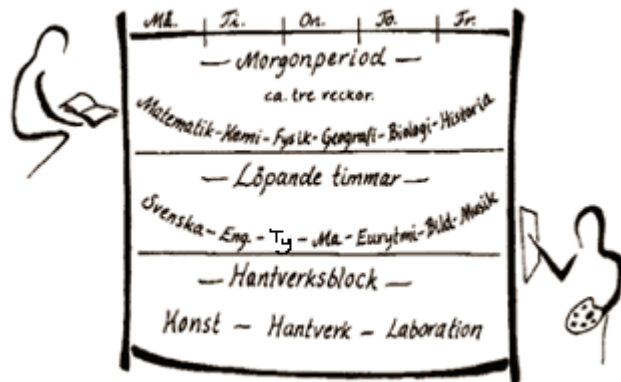 Må. Ti. On. To. Fr.
— Morgonperiod —
ca. tre veckor.
Matematik-Kemi-Fysik-Geografi-Biologi-Historia
— Löpande timmar —
Svenska-Eng.-Ty-Ma-Eurytmi-Bild-Musik
— Hantverksblock —
Konst — Hantverk — Laboration